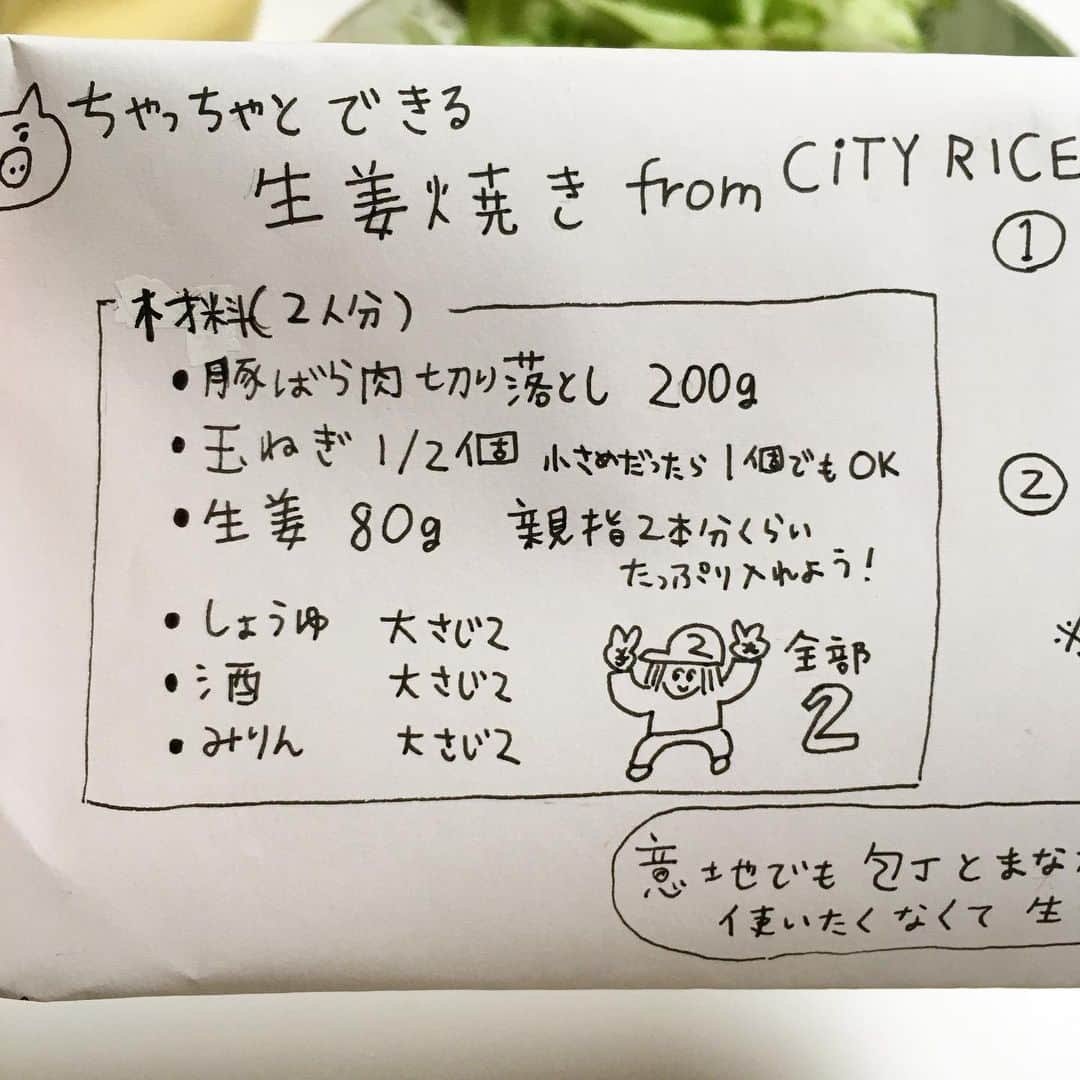 ちゃっちゃと できる
生姜焼き from CiTY RICE
①
材料(2人分)
・豚ばら肉 切り落とし 200g
・玉ねぎ 1/2個 小さめだったら1個でもOK
②
・生姜 80g 親指2本分くらい
たっぷり入れよう!
・しょうゆ 大さじ2
※
・酒 大さじ2
・みりん 大さじ2
2
全部
2
意地でも 包丁とまな
使いたくなくて 生